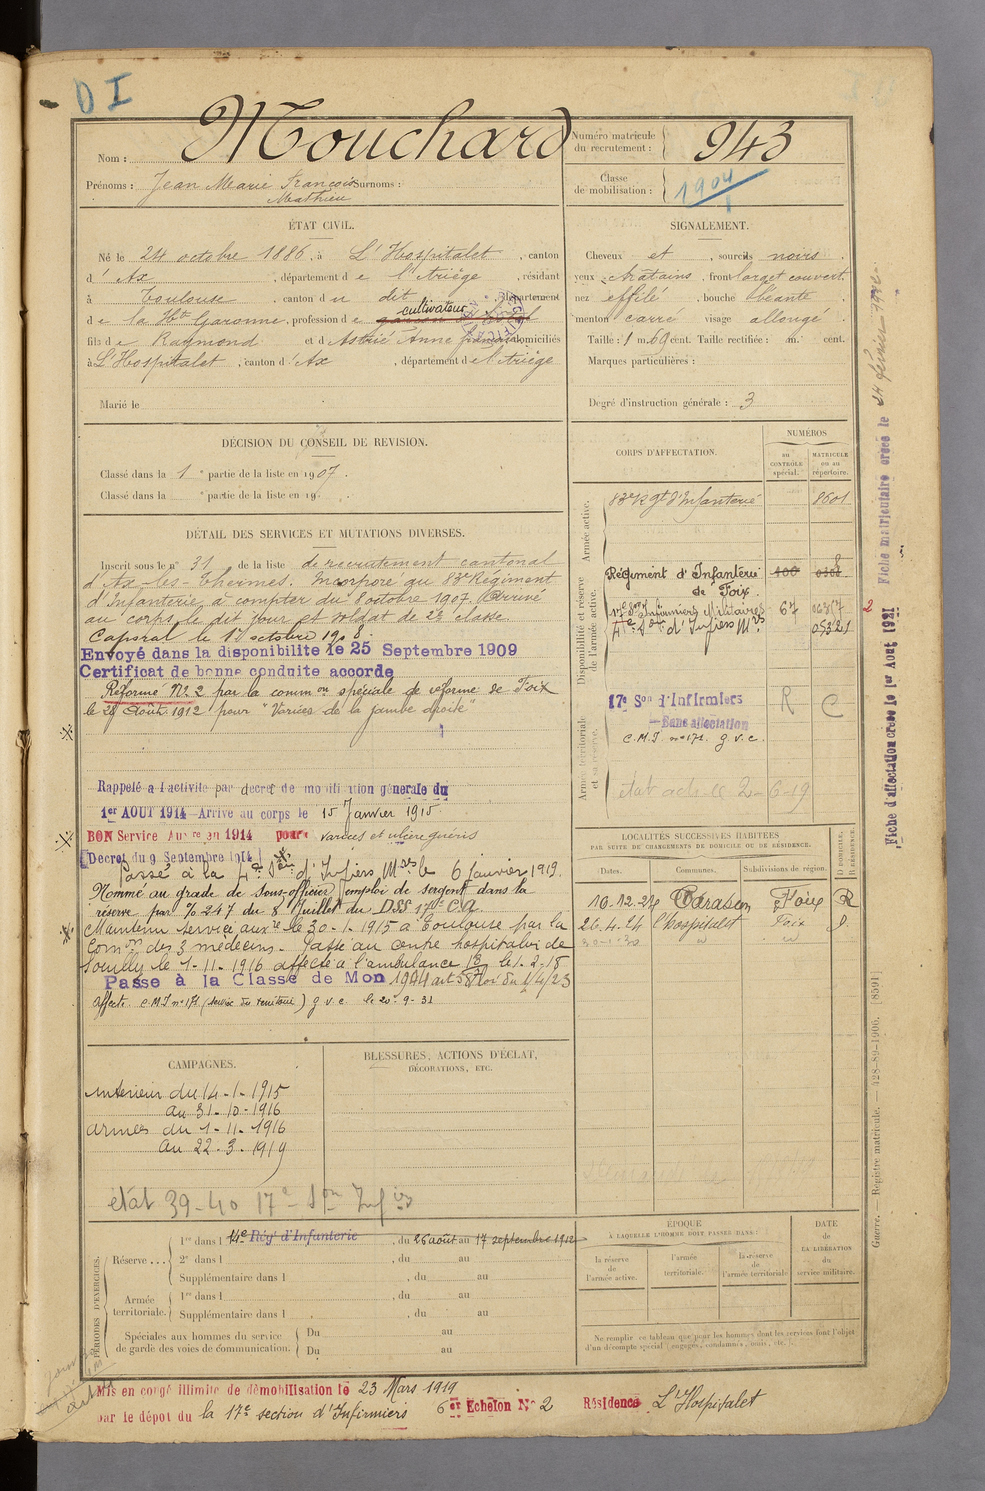 D I
Nom : Mouchard
Prénoms : Jean Marie François Surnoms :
Mathieu
Numéro matricule
du recrutement : 943
Classe
de mobilisation : 1904
ÉTAT CIVIL.
Né le 24 octobre 1886, à L'Hospitalet, canton
d'Ax, département de l'Ariège, résidant
à Toulouse, canton du dit, département
de la Hte Garonne, profession de cultivateur
fils de Raymond et d'Astrié Anne domiciliés
à L'Hospitalet, canton d'Ax, département de l'Ariège
Marié le
SIGNALEMENT.
Cheveux et, sourcils noirs
yeux chatains, front large et couvert
nez effilé, bouche béante
menton carré visage allongé
Taille : 1 m. 69 cent. Taille rectifiée : m. cent.
Marques particulières :
Degré d'instruction générale : 3
DÉCISION DU CONSEIL DE REVISION.
Classé dans la 1e partie de la liste en 1907.
Classé dans la e partie de la liste en 19
DÉTAIL DES SERVICES ET MUTATIONS DIVERSES.
Inscrit sous le n° 31 de la liste de recrutement cantonal
d'Ax-les-Thermes. Incorporé au 83e Régiment
d'Infanterie à compter du 8 octobre 1907. Arrivé
au corps le dit jour et soldat de 2e classe.
Caporal le 1er octobre 1908.
Envoyé dans la disponibilite le 25 Septembre 1909
Certificat de bonne conduite accorde
Réformé N° 2 par la comm on spéciale de réforme de Foix
le 28 Août 1912 pour "Varices de la jambe droite"
Rappelé a l activite par decret de mobilisation générale du
1er AOUT 1914 Arrivé au corps le 15 Janvier 1915
BON Service Aux re en 1914 pour varices et ulcère guéris
Decret du 9 Septembre 1914
Passé à la 4e Son d'Infiers Mres le 6 Janvier 1919.
Nommé au grade de sous-officier emploi de sergent dans la
réserve par % 247 du 8 Juillet du DSS 17e C.A.
Maintenu service auxre le 30-1-1915 à Toulouse par la
Comon des 3 médecins. Passé au centre hospitalier de
Souilly le 1-11-1916 affecté à l'ambulance le 1-2-18
Passe à la Classe de Mon 1904 art 58 loi du 1/4/23
Affecté C.M.I n° 171 (service du territoire) g v c le 20-9-31
CORPS D'AFFECTATION.
NUMÉROS
au
CONTRÔLE
spécial.
MATRICULE
ou au
répertoire.
Armée active.
83e Rgt d'Infanterie 8601
Disponibilité et réserve
de l'armée active.
Régiment d'Infanterie
de Foix
17e Son Infirmiers Militaires 67
4e Son d'Infiers Mres 05321
Armée territoriale
et sa réserve.
17e Son d'Infirmiers R C
Sans affectation
C.M.I. n° 171. g.v.c.
LOCALITÉS SUCCESSIVES HABITÉES
PAR SUITE DE CHANGEMENTS DE DOMICILE OU DE RÉSIDENCE.
Dates. Communes. Subdivisions de région. D DOMICILE, R RÉSIDENCE.
Tarascon Foix R
26.4.24 l'hospitalet Foix D
CAMPAGNES.
Intérieur du 14-1-1915
au 31-10-1916
armées du 1-11-1916
au 22-3-1919
état 39-40 17e Son Infiers
BLESSURES, ACTIONS D'ÉCLAT,
DÉCORATIONS, ETC.
PÉRIODES D'EXERCICES.
Réserve ...
1re dans l 14e Rég d'Infanterie, du 26 août au 17 septembre 1912
2e dans l , du au
Supplémentaire dans l , du au
Armée
territoriale.
1re dans l , du au
Supplémentaire dans l , du au
Spéciales aux hommes du service
de garde des voies de communication.
Du au
Du au
ÉPOQUE
À LAQUELLE L'HOMME DOIT PASSER DANS :
la réserve
de
l'armée active.
l'armée
territoriale.
la réserve
de
l'armée territoriale
DATE
de
LA LIBÉRATION
du
service militaire.
Ne remplir ce tableau que pour les hommes dont les services font l'objet
d'un décompte spécial (engagés, condamnés, omis, etc.).
Mis en congé illimite de démobilisation le 23 Mars 1919
par le dépot du la 17e section d'Infirmiers 6er Echelon N° 2 Résidence L'Hospitalet
Fiche d'affectation creée le 1er Aout 1921
Fiche matriculaire creée le
Guerre. — Registre matricule. — 428-89-1906. [8591]